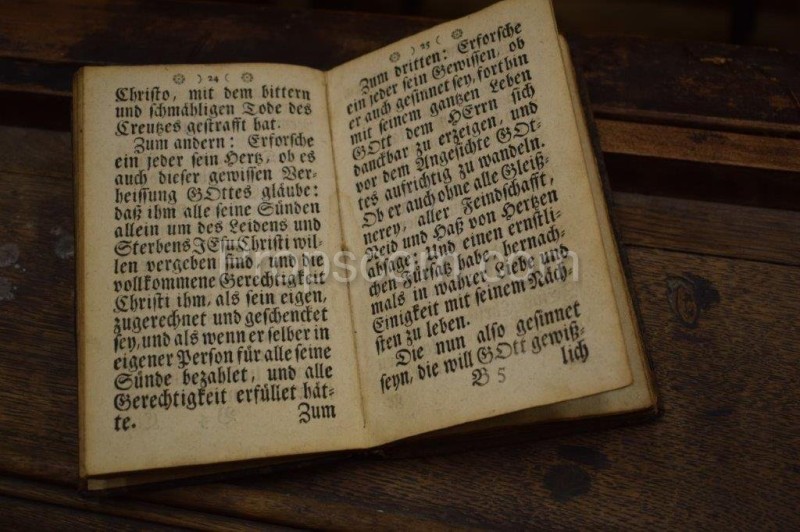 ) 24 (
Christo, mit dem bittern
und schmähligen Tode des
Creutzes gestrafft hat.
Zum andern: Erforsche
ein jeder sein Hertz, ob es
auch dieser gewissen Ver-
heissung GOttes gläube:
daß ihm alle seine Sünden
allein um des Leidens und
Sterbens JEsu Christi wil-
len vergeben sind, und die
vollkommene Gerechtigkeit
Christi ihm, als sein eigen,
zugerechnet und geschencket
sey, und als wenn er selber in
eigener Person für alle seine
Sünde bezahlet, und alle
Gerechtigkeit erfüllet hät-
te.
Zum
) 25 (
Zum dritten: Erforsche
ein jeder sein Gewissen, ob
er auch gesinnet sey, fort hin
mit seinem gantzen Leben
GOtt dem HErrn sich
danckbar zu erzeigen, und
vor dem Angesichte GOt-
tes aufrichtig zu wandeln.
Ob er auch ohne alle Gleiß-
nerey, aller Feindschafft,
Neid und Haß von Hertzen
absage, Und einen ernstli-
chen Fürsatz habe, hernach-
mals in wahrer Liebe und
Einigkeit mit seinem Näch-
sten zu leben.
Die nun also gesinnet
seyn, die will GOtt gewiß-
lich
B 5